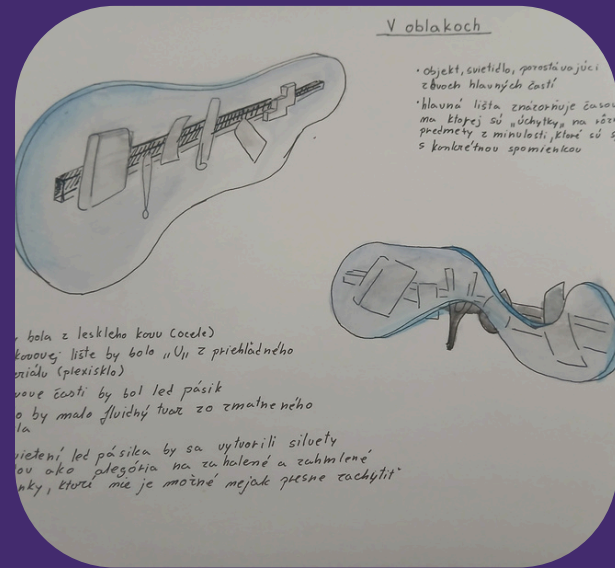 V oblakoch
• objekt, svietidlo, pozostávajúci
z dvoch hlavných častí
• hlavná lišta znázorňuje časov
na ktorej sú „úchytky„ na rôz
predmety z minulosti, ktoré sú s
s konkrétnou spomienkou
bola z lesklého kovu (ocele)
kovovej lište by bolo „U„ z priehľadného
riálu (plexisklo)
ove časti by bol led pásik
o by malo fluidný tvar zo zmatneného
la
vietení led pásika by sa vytvorili siluety
ou ako alegória na zahalené a zahmlené
nky, ktoré nie je možné nejak presne zachytiť